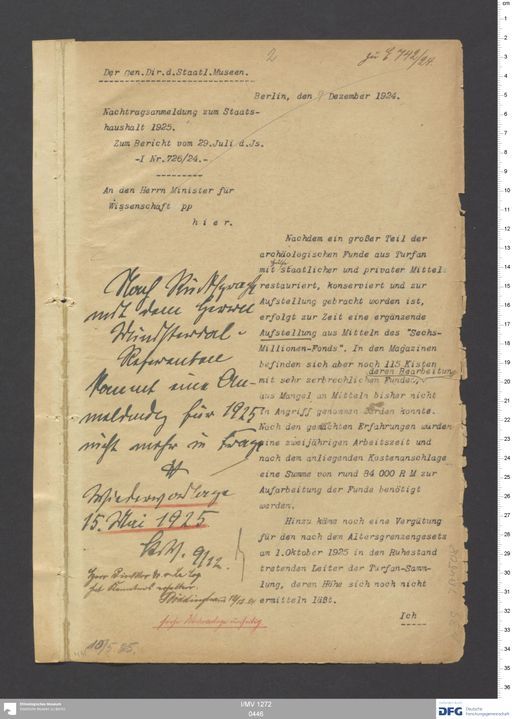 2
zu I 742/24
Der Gen.Dir.d.Staatl.Museen.
Berlin, den 9 Dezember 1924.
Nachtragsanmeldung zum Staats-
haushalt 1925.
Zum Bericht vom 29.Juli d.Js.
-I Nr.726/24.-
An den Herrn Minister für
Wissenschaft pp
hier.
Nachdem ein großer Teil der
archäologischen Funde aus Turfan
mit Hülfe staatlicher und privater Mittel
restauriert, konserviert und zur
Aufstellung gebracht worden ist,
erfolgt zur Zeit eine ergänzende
Aufstellung aus Mitteln des "Sechs-
Millionen-Fonds". In den Magazinen
befinden sich aber noch 115 Kisten
mit sehr zerbrechlichen Funden, deren Bearbeitung
aus Mangel an Mitteln bisher nicht
in Angriff genommen werden konnte.
Nach den gemachten Erfahrungen würden
eine zweijährigen Arbeitszeit und
nach dem anliegenden Kostenanschlage
eine Summe von rund 84 000 R M zur
Aufarbeitung der Funde benötigt
werden.
Hinzu käme noch eine Vergütung
für den nach dem Altersgrenzengesetz
am 1.Oktober 1925 in den Ruhestand
tretenden Leiter der Turfan-Samm-
lung, deren Höhe sich noch nicht
ermitteln läßt.
Ich
Nach Rücksprache
mit dem Herrn
Ministerial-
Referenten
kommt eine An-
meldung für 1925
nicht mehr in Frage
Wiedervorlage
15. Mai 1925
9/12.
Herr Direktor v. Le Coq
hat Kenntnis erhalten
18/5.25.
Ethnologisches Museum
I/MV 1272
0446
DFG Deutsche
Forschungsgemeinschaft